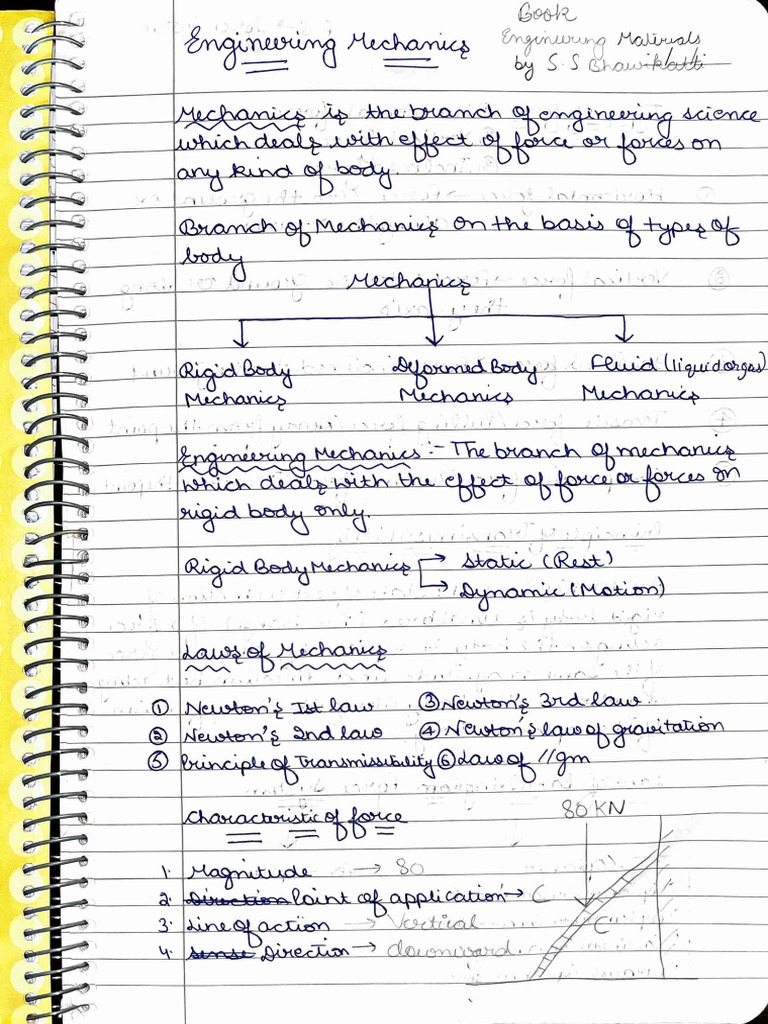 Book
Engineering Mechanics
Engineering Materials
by S.S Bhavikatti
Mechanics is the branch of engineering science
which deals with effect of force or forces on
any kind of body.
Branch of Mechanics on the basis of types of
body
Mechanics
Rigid Body Deformed Body Fluid (liquid or gas)
Mechanics Mechanics Mechanics
Engineering Mechanics :- The branch of mechanics
which deals with the effect of force or forces on
rigid body only.
Rigid Body Mechanics → Static (Rest)
→ Dynamic (Motion)
Laws of Mechanics
① Newton's Ist law ③ Newton's 3rd law
② Newton's 2nd law ④ Newton's law of gravitation
⑤ Principle of Transmissibility ⑥ Law of //gm
Characteristic of force
80 KN
1. Magnitude → 80
2. Direction Point of application → C
3. Line of action → Vertical
C
4. sense Direction → downward